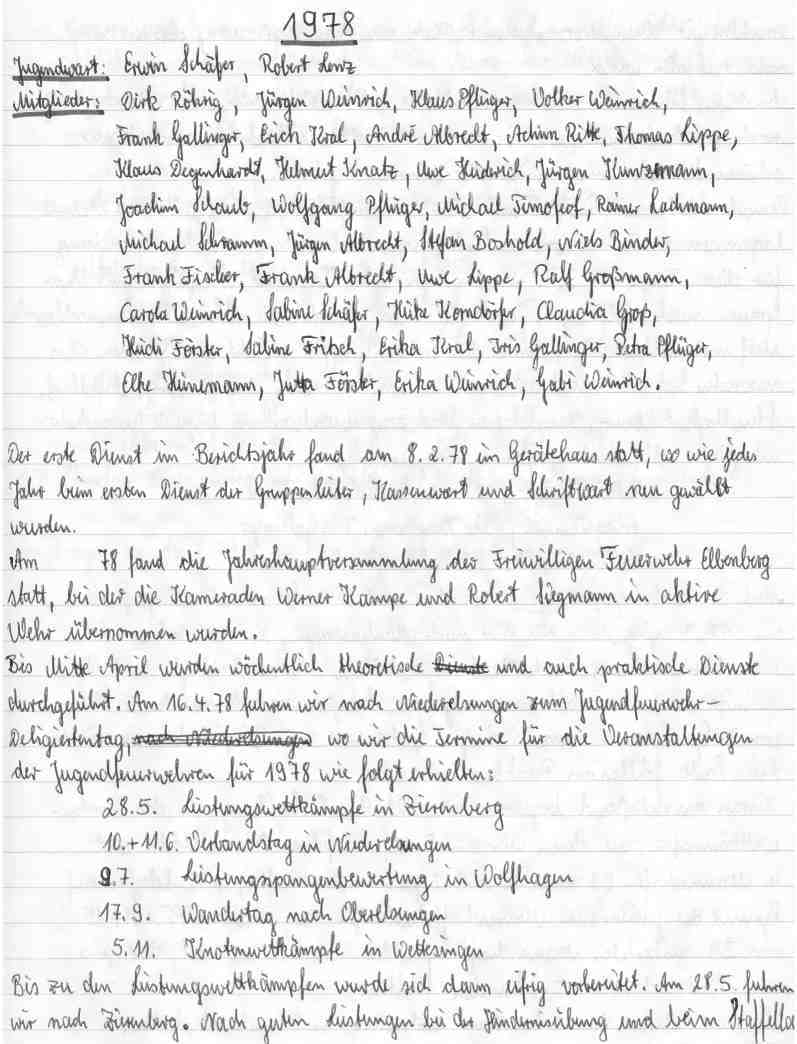 1978
Jugendwart: Erwin Schäfer, Robert Lenz
Mitglieder: Dirk Röhrig, Jürgen Weinrich, Klaus Pflüger, Volker Weinrich,
Frank Gallinger, Erich Kral, André Albrecht, Achim Ritte, Thomas Lippe,
Klaus Degenhardt, Helmut Knatz, Uwe Heiderich, Jürgen Kunzemann,
Joachim Schaub, Wolfgang Pflüger, Michael Timofeof, Rainer Lachmann,
Michael Schramm, Jürgen Albrecht, Stefan Boshold, Niels Binder,
Frank Fischer, Frank Albrecht, Uwe Lippe, Ralf Großmann,
Carola Weinrich, Sabine Schäfer, Heike Korndörfer, Claudia Groß,
Heidi Förster, Sabine Fritsch, Erika Kral, Iris Gallinger, Petra Pflüger,
Elke Heinemann, Jutta Förster, Erika Weinrich, Gabi Weinrich.
Der erste Dienst im Berichtsjahr fand am 8.2.78 im Gerätehaus statt, wo wie jedes
Jahr beim ersten Dienst der Gruppenleiter, Kassenwart und Schriftwart neu gewählt
wurden.
Am 78 fand die Jahreshauptversammlung der Freiwilligen Feuerwehr Elbenberg
statt, bei der die Kameraden Werner Kampe und Robert Siegmann in aktive
Wehr übernommen wurden.
Bis Mitte April wurden wöchentlich theoretische Dienste und auch praktische Dienste
durchgeführt. Am 16.4.78 fuhren wir nach Niederelsungen zum Jugendfeuerwehr-
Deligiertentag, nach Niederelsungen wo wir die Termine für die Veranstaltungen
der Jugendfeuerwehren für 1978 wie folgt erhielten:
28.5. Leistungswettkämpfe in Zierenberg
10.+11.6. Verbandstag in Niederelsungen
9.7. Leistungsspangenbewertung in Wolfhagen
17.9. Wandertag nach Oberelsungen
5.11. Knotenwettkämpfe in Wettesingen
Bis zu den Leistungswettkämpfen wurde sich dann eifrig vorbereitet. Am 28.5. fuhren
wir nach Zierenberg. Nach guten Leistungen bei der Hindernisübung und beim Staffella